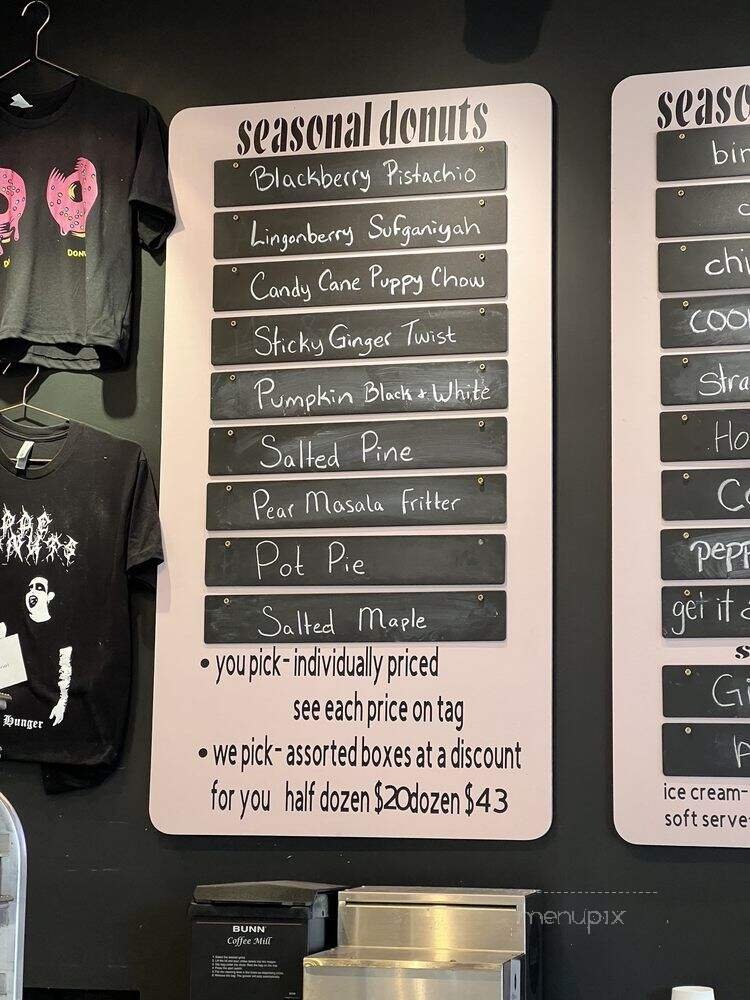 seasonal donuts
Blackberry Pistachio
Lingonberry Sufganiyah
Candy Cane Puppy Chow
Sticky Ginger Twist
Pumpkin Black & White
Salted Pine
Pear Masala Fritter
Pot Pie
Salted Maple
• you pick - individually priced
see each price on tag
• we pick - assorted boxes at a discount
for you half dozen $20 dozen $43
seaso
bir
c
chi
coo
Stra
Ho
Co
pepp
gei it
s
Gi
ice cream-
soft serve-
DON
Hunger
BUNN
Coffee Mill
menupix